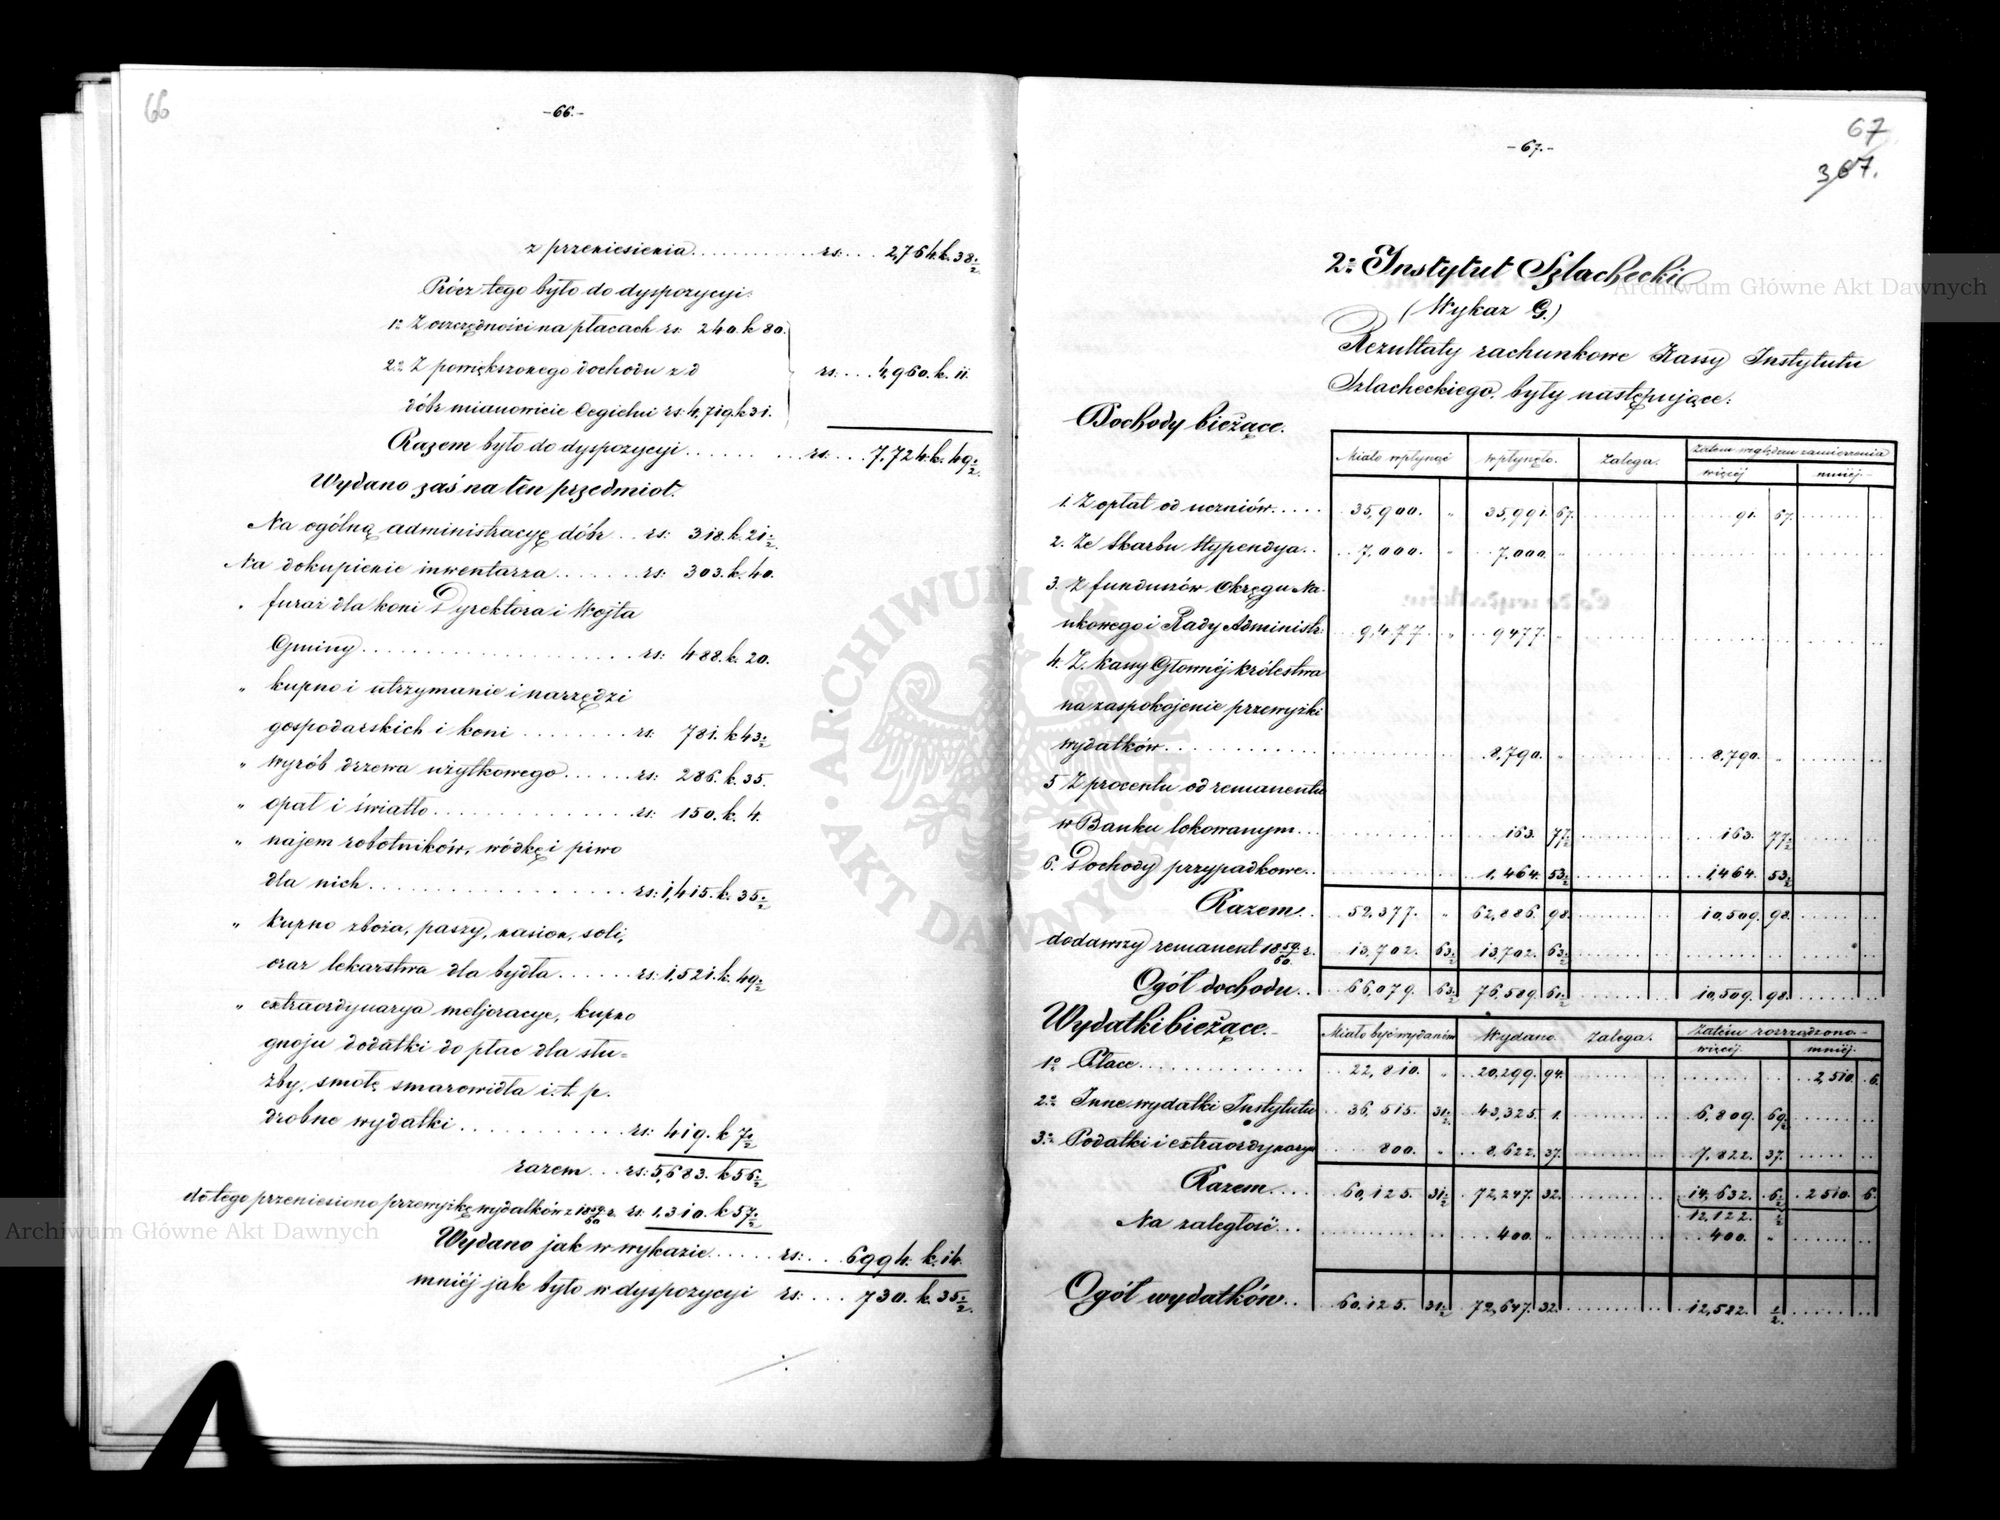 66
-66.-
z przeniesienia . . . . . . . . . . . rs: . . . 2,764 k. 38 1/2
Prócz tego było do dyspozycyi:
1o Z oszczędności na płacach rs: 240. k 80.
2o Z powiększonego dochodu z d
dóbr mianowicie Cegielni rs: 4,719. k 31.
rs: . . . 4,960. k. 11.
Razem było do dyspozycyi . . . . . . . . . rs: . . . 7,724. k. 49 1/2
Wydano zaś na ten przedmiot.
Na ogólną administracyę dóbr . . . rs: 318. k. 21 1/2.
Na dokupienie inwentarza . . . . . . . rs: 303. k. 40.
„ furaż dla koni Dyrektora i Wójta
Gminy . . . . . . . . . . . . . . . . . . . . . rs: 488. k. 20.
„ kupno i utrzymanie i narzędzi
gospodarskich i koni . . . . . . . . rs: 781. k 43 1/2
„ wyrób drzewa użytkowego . . . . . . rs: 286. k. 35.
„ opał i światło . . . . . . . . . . . . . . . rs: 150. k. 4.
„ najem robotników, wódkę i piwo
dla nich . . . . . . . . . . . . . . . . . . . . rs: 1,415. k. 35 1/2
„ kupno zboża, paszy, nasion, soli,
oraz lekarstwa dla bydła . . . . . . rs: 1,521. k. 49 1/2
„ extraordynarya meljoracye, kupno
gnoju dodatki do płac dla słu=
żby, smołę smarowidła i. t. p.
drobne wydatki . . . . . . . . . . . . . rs: 419. k 7 1/2
razem . . . rs: 5,683. k 56 1/2
do tego przeniesiono przewyżkę wydatków z 1859/60 r. rs: 1,310. k 57 1/2
Wydano jak w wykazie . . . . . rs: . . . 6994. k. 14.
mniéj jak było w dyspozycyi rs: . . . 730. k. 35 1/2.
67
-67.-
367.
2o Instytut Szlachecki
(Wykaz G.)
Rezultaty rachunkowe Kassy Instytutu
Szlacheckiego, były następujące:
Dochody bieżące.
Miało wpłynąć wpłynęło. Zalega. Zatem względem zamierzenia
więcéj mniéj
1. Z opłat od uczniów . . . . . 35,900. „ 35,991. 67. 91. 67.
2. Ze Skarbu stypendya . . 7,000. „ 7,000. „
3. Z funduszów Okręgu Na-
ukowego i Rady Administr: 9,477. „ 9477. „
4. Z kassy Głównéj królestwa
na zaspokojenie przewyżki
wydatków . . . . . . . . . . . . 8,790. „ 8,790. „
5 Z procentu od remanentu
w Banku lokowanym . . . 163. 77 1/2 163. 77 1/2
6. Dochody przypadkowe . . 1,464. 53 1/2 1,464. 53 1/2
Razem . . 52,377. „ 62,886. 98. 10,509. 98.
dodawszy remanent 1859/60 r. 13,702. 63 1/2 13,702. 63 1/2
Ogół dochodu . . 66,079. 63 1/2 76,589. 61 1/2 10,509. 98.
Wydatki bieżące.
Miało być wydaném Wydano. Zalega. Zatém rozrządzono
więcéj. mniéj.
1o Płace . . . . . . . . . . . . . . 22,810. „ 20,299. 94. 2,510. 6.
2o Inne wydatki Instytutu 36,515. 31 1/2 43,325. 1. 6,809. 69 1/2
3o Podatki i extraordynarya 800. „ 8,622. 37. 7,822. 37.
Razem . . . . 60,125. 31 1/2 72,247. 32. 14,632. 6 1/2 2510. 6.
12,122. 1/2
Na zaległość . . . 400. „ 400. „
Ogół wydatków . . 60,125. 31 1/2 72,647. 32. 12,522. 1/2.
Archiwum Główne Akt Dawnych
Archiwum Główne Akt Dawnych
ARCHIWUM GŁÓWNE AKT DAWNYCH